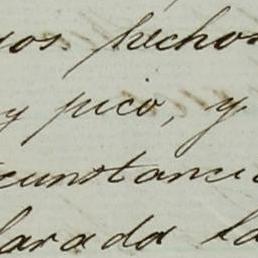 os hechos
y pico, y
cunstanci
larada la